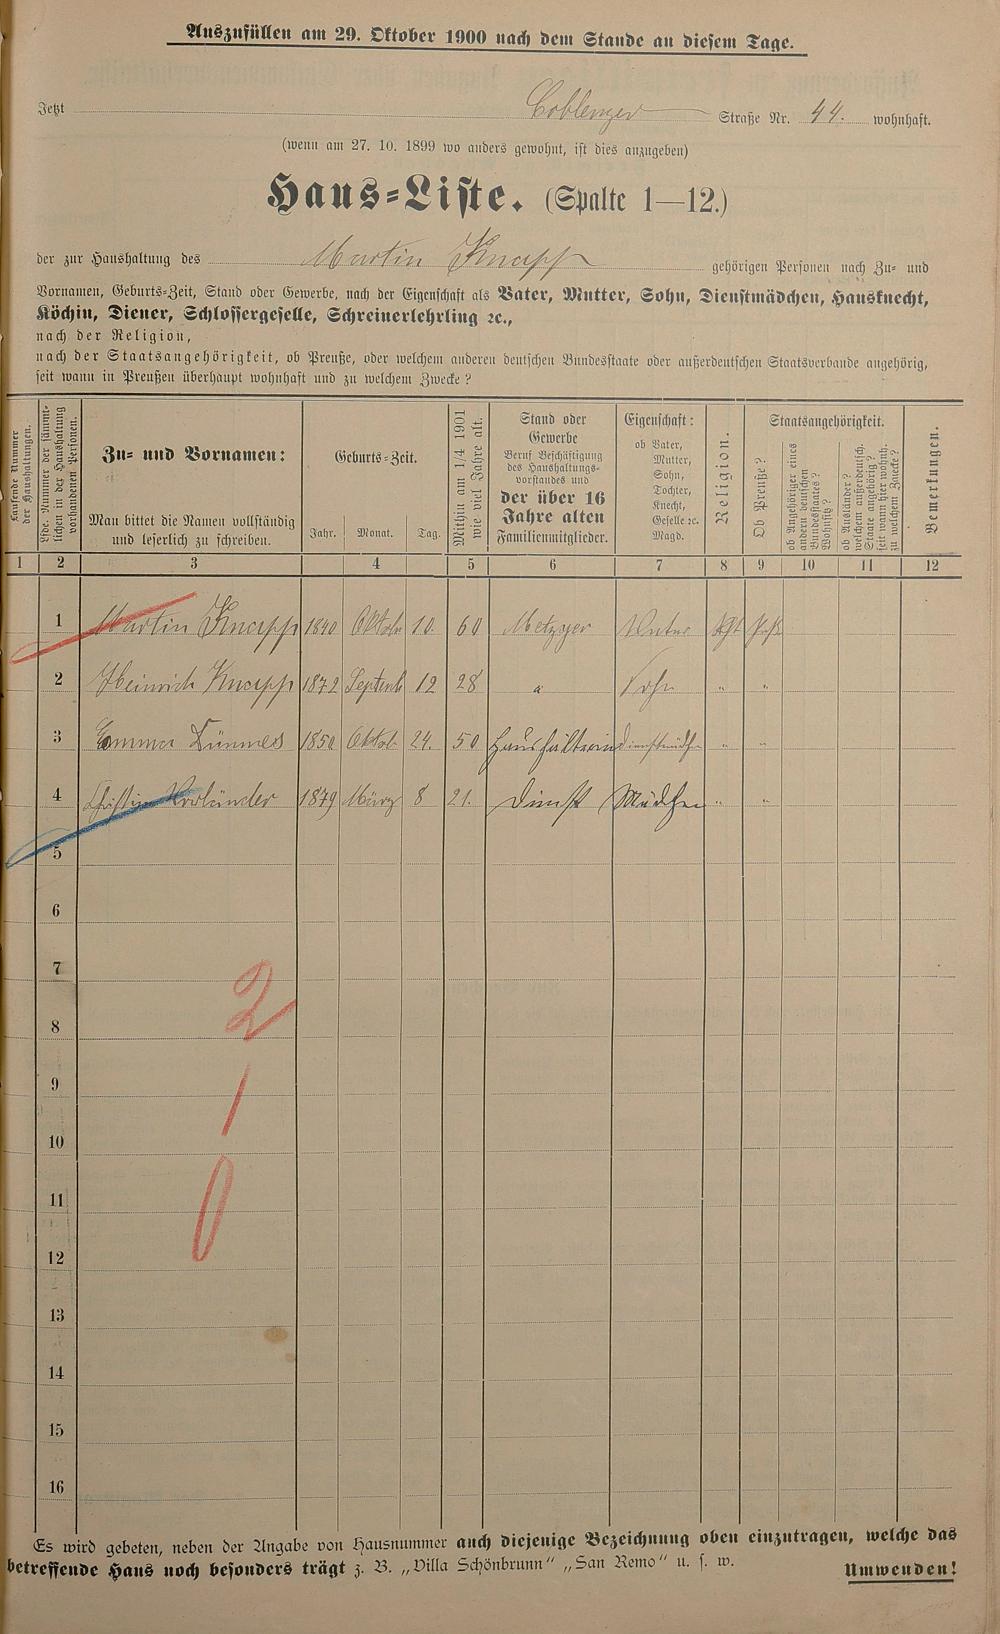 Auszufüllen am 29. Oktober 1900 nach dem Stande an diesem Tage.
Jetzt Coblenzer Straße Nr. 44. wohnhaft.
(wenn am 27. 10. 1899 wo anders gewohnt, ist dies anzugeben)
Haus-Liste. (Spalte 1—12.)
der zur Haushaltung des Martin Knapp gehörigen Personen nach Zu- und
Vornamen, Geburts-Zeit, Stand oder Gewerbe, nach der Eigenschaft als Vater, Mutter, Sohn, Dienstmädchen, Hausknecht,
Köchin, Diener, Schlossergeselle, Schreinerlehrling ꝛc.,
nach der Religion,
nach der Staatsangehörigkeit, ob Preuße, oder welchem anderen deutschen Bundesstaate oder außerdeutschen Staatsverbande angehörig,
seit wann in Preußen überhaupt wohnhaft und zu welchem Zwecke?
Laufende Nummer
der Haushaltungen.
Lfde. Nummer der sämmt-
lichen in der Haushaltung
vorhandenen Personen.
Zu- und Vornamen:
Man bittet die Namen vollständig
und leserlich zu schreiben.
Geburts-Zeit.
Jahr. Monat. Tag.
Mithin am 1/4 1901
wie viel Jahre alt.
Stand oder
Gewerbe
Beruf Beschäftigung
des Haushaltungs-
vorstandes und
der über 16
Jahre alten
Familienmitglieder.
Eigenschaft:
ob Vater,
Mutter,
Sohn,
Tochter,
Knecht,
Geselle ꝛc.
Magd.
Religion.
Staatsangehörigkeit.
Ob Preuße?
ob Angehöriger eines
andern deutschen
Bundesstaates?
Wohnsitz?
ob Ausländer?
welchem außerdeutsch.
Staate angehörig?
seit wann hier wohnh.
zu welchem Zwecke?
Bemerkungen.
1 2 3 4 5 6 7 8 9 10 11 12
1 Martin Knapp 1840 Oktob 10. 60 Metzger Vater Kth
2 Heinrich Knapp 1872 Septemb 12 28 " Sohn " "
3 1850 Oktob 24. 50 Haushälterin " "
4 1879 März 8 21. Dienst Mädchen " "
5
6
7
8
9
10
11
12
13
14
15
16
2
1
0
Es wird gebeten, neben der Angabe von Hausnummer auch diejenige Bezeichnung oben einzutragen, welche das
betreffende Haus noch besonders trägt z. B. „Villa Schönbrunn" „San Remo" u. s. w.
Umwenden!